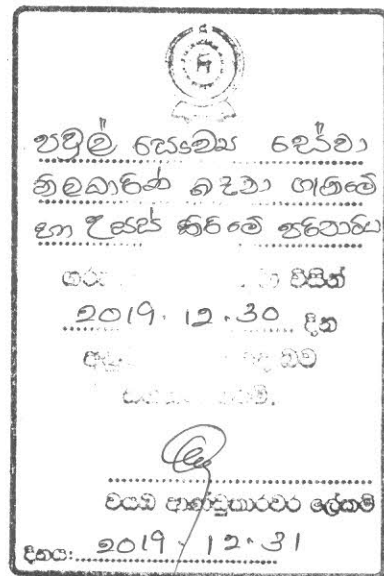 පවුල් සෞඛ්‍ය සේවා
නිලධාරීන් බඳවා ගැනීමේ
හා උසස් කිරීමේ පරිපාටිය
ගරු විසින්
2019.12.30 දින
බව
වයඹ ආණ්ඩුකාරවර ලේකම්
දිනය: 2019.12.31